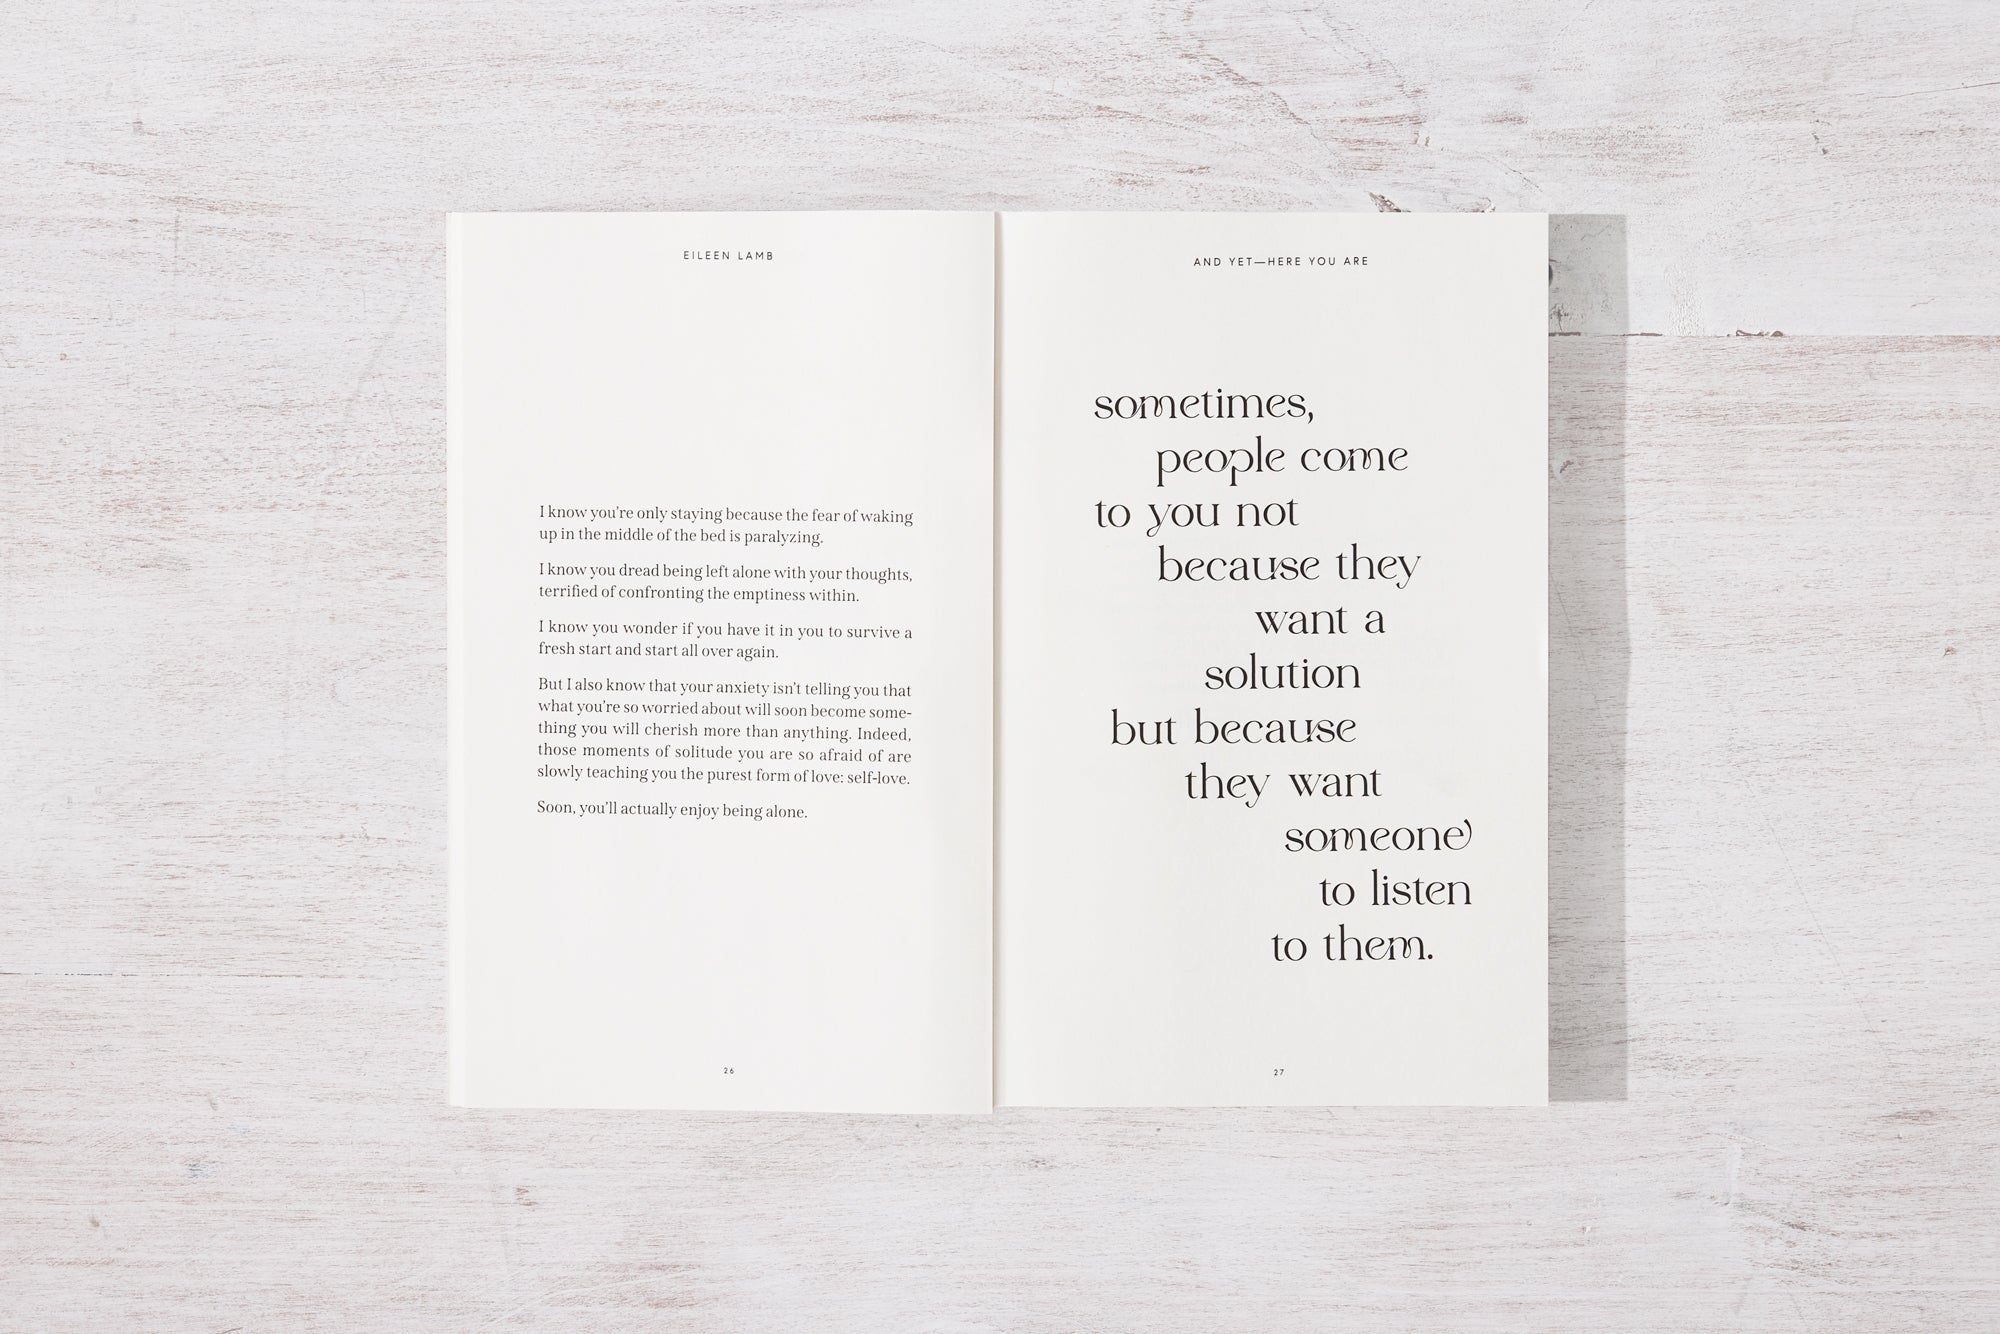 EILEEN LAMB
I know you're only staying because the fear of waking
up in the middle of the bed is paralyzing.
I know you dread being left alone with your thoughts,
terrified of confronting the emptiness within.
I know you wonder if you have it in you to survive a
fresh start and start all over again.
But I also know that your anxiety isn't telling you that
what you're so worried about will soon become some-
thing you will cherish more than anything. Indeed,
those moments of solitude you are so afraid of are
slowly teaching you the purest form of love: self-love.
Soon, you'll actually enjoy being alone.
26
AND YET—HERE YOU ARE
sometimes,
people come
to you not
because they
want a
solution
but because
they want
someone
to listen
to them.
27